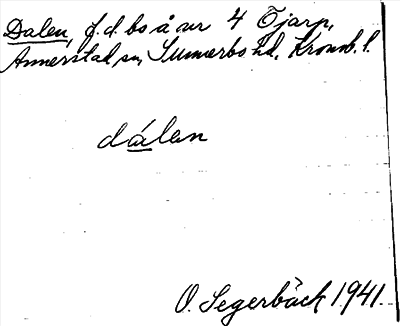 Dalen, f.d. bo å av 4 Tjarp,
Annerstad sn, Sunnerbo hd, Kronob. l.
dálen
O. Segerbäck 1941.